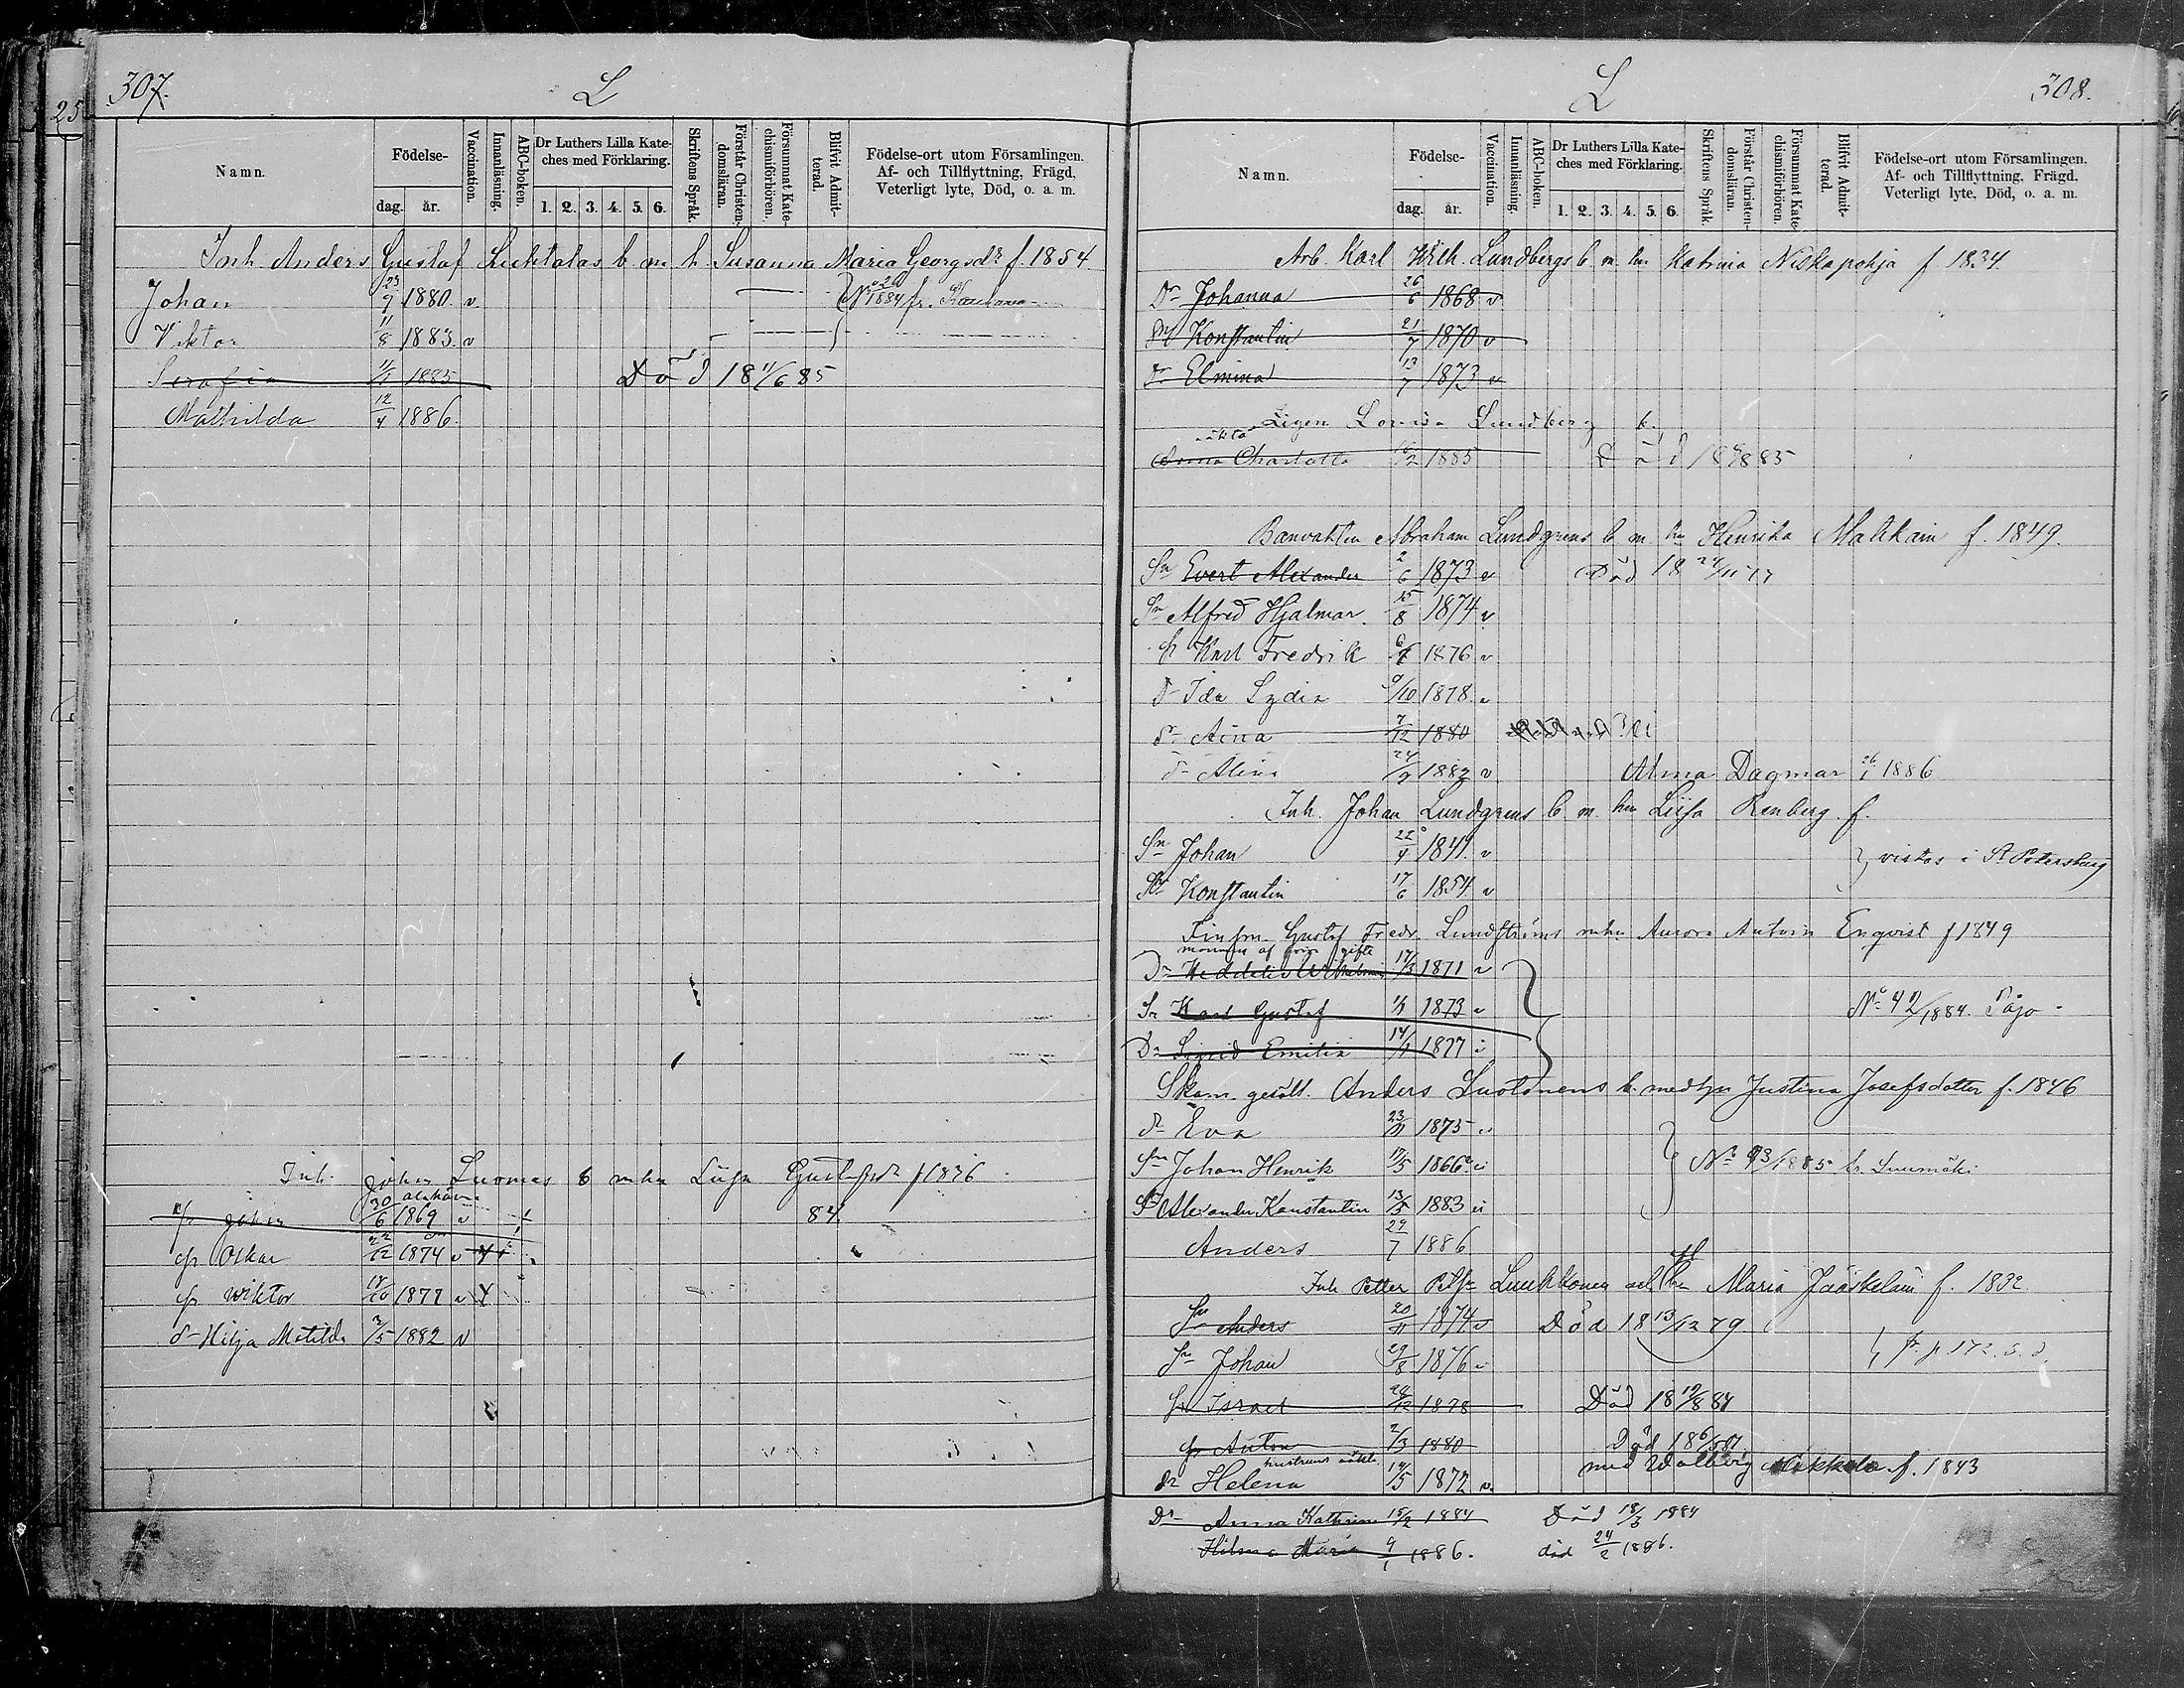 307.
L
Namn.
Födelse-
dag. år.
Vaccination.
Innanläsning.
ABC-boken.
Dr Luthers Lilla Kate-
ches med Förklaring.
1. 2. 3. 4. 5. 6.
Skriftens Språk.
Förstår Christen-
domsläran.
Försummat Kate-
chismiförhören.
Blifvit Admit-
terad.
Födelse-ort utom Församlingen.
Af- och Tillflyttning, Frägd,
Veterligt lyte, Död, o. a. m.
Inh. Anders Gustaf b. m. h. Susanna Maria Georgsdr f. 1854
Johan 23/9 1880. v. 1884 fr.
Viktor 11/8 1883. v
Serafia 1885 Död 18 11/6 85
Mathilda 12/4 1886.
Inh. Johan Luomas b mhu Liisa f 1836
Johan 30/6 1869 v 84
Oskar 22/12 1874 v
Wiktor 18/10 1877 v
dr Hilja Matilda 2/5 1882 v
L
308.
Namn.
Födelse-
dag. år.
Vaccination.
Innanläsning.
ABC-boken.
Dr Luthers Lilla Kate-
ches med Förklaring.
1. 2. 3. 4. 5. 6.
Skriftens Språk.
Förstår Christen-
domsläran.
Försummat Kate-
chismiförhören.
Blifvit Admit-
terad.
Födelse-ort utom Församlingen.
Af- och Tillflyttning, Frägd.
Veterligt lyte, Död, o. a. m.
Arb. Karl Wilh. Lundbergs b m hu Katrina Niskapohja f. 1834
Dr Johanna 26/6 1868 v
Konstantin 21/7 1870 v
dr Elmina 13/7 1873 v
Lovisa Lundberg b.
oäkta
Anna Charlotta 1885 Död 18 /8 85
Banvakten Abraham Lundgrens b m hu Henrika f. 1849.
Sn Evert Alexander 2/6 1873 v Död 18 24/11 77
Sn Alfred Hjalmar. 15/8 1874 v
Karl Fredrik 1876 v
dr Ida Lydia 9/10 1878 v
dr Aina 7/12 1880
dr Alina 24/9 1882 v Alma Dagmar 26/1 1886
Inh. Johan Lundgrens b m. hu Liisa Renberg. f.
Sn Johan 22/4 1841. v vistas i St Petersburg
Konstantin 17/6 1854 v
Gustaf Fredr. Lundströms mhu Aurora Enqvist f 1849
gifte
Dr 17/3 1871 v
Sn Karl Gustaf 1/1 1873 v No 42/1884.
Dr Sigrid Emilia 1877 v
Skom. gesäll. Anders b. med hu Justina Josefsdotter f. 1846
dr Eva 23/11 1875 v
Sn Johan Henrik 17/5 1866 No 93/1885 fr. Luumäki
Sn Alexander Konstantin 1883 ei
Anders 29/7 1886
Inh Petter Luukkonen Maria Jääskeläin f. 1832
Sn Anders 20/11 1874 v Död 18 13/12 79
Sn Johan 29/8 1876 v fr p 172.
Israel 1878 Död 18 19/8 81
Anton 2/3 1880 Död 18 6/5 81
hustruns oäkta
dr Helena 14/5 1872 v. med Walborg f. 1843
Dr Anna Kathrina 15/2 1884 Död 18/3 1884
Hilma Maria 9/1 1886. död 24/2 1886.